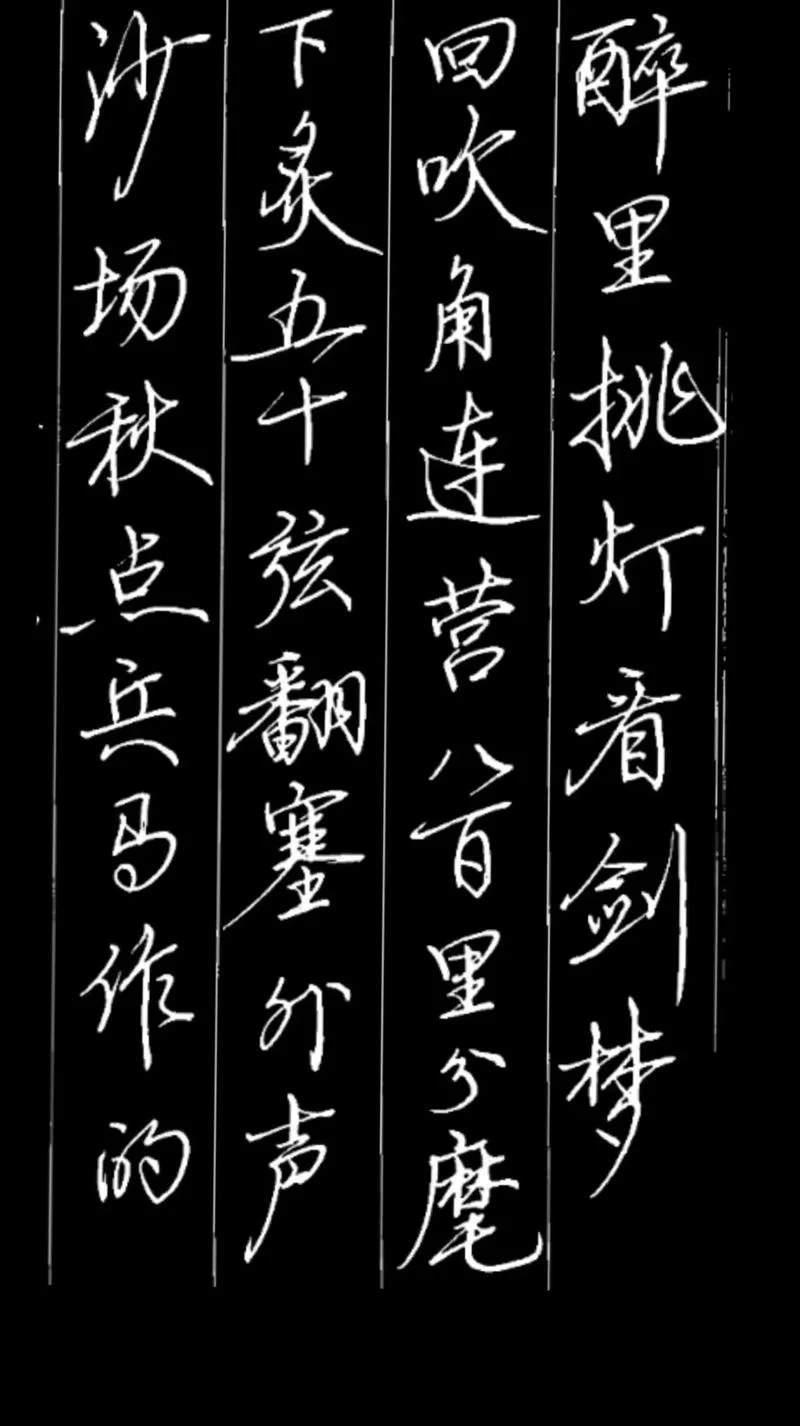 醉里挑灯看剑梦
回吹角连营八百里分麾
下炙五十弦翻塞外声
沙场秋点兵马作的